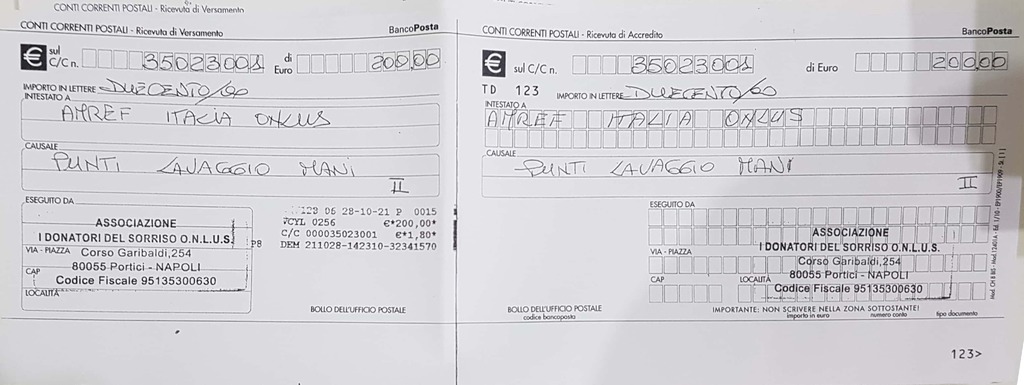 CONTI CORRENTI POSTALI - Ricevuta di Versamento
CONTI CORRENTI POSTALI - Ricevuta di Versamento BancoPosta
€ sul C/C n. 35023001 di Euro 200,00
IMPORTO IN LETTERE DUECENTO/00
INTESTATO A
AMREF ITALIA ONLUS
CAUSALE
PUNTI LAVAGGIO MANI
II
ESEGUITO DA
ASSOCIAZIONE
I DONATORI DEL SORRISO O.N.L.U.S.
VIA - PIAZZA Corso Garibaldi,254
CAP 80055 Portici - NAPOLI
Codice Fiscale 95135300630
LOCALITÀ
06 28-10-21 P 0015
VCYL 0256 €*200,00*
C/C 000035023001 €*1,80*
P8 DEM 211028-142310-32341570
BOLLO DELL'UFFICIO POSTALE
CONTI CORRENTI POSTALI - Ricevuta di Accredito BancoPosta
€ sul C/C n. 35023001 di Euro 200,00
TD 123 IMPORTO IN LETTERE DUECENTO/00
INTESTATO A
AMREF ITALIA ONLUS
CAUSALE
PUNTI LAVAGGIO MANI
II
ESEGUITO DA
ASSOCIAZIONE
I DONATORI DEL SORRISO O.N.L.U.S.
VIA - PIAZZA
Corso Garibaldi,254
CAP LOCALITÀ 80055 Portici - NAPOLI
Codice Fiscale 95135300630
BOLLO DELL'UFFICIO POSTALE
codice bancoposta
IMPORTANTE: NON SCRIVERE NELLA ZONA SOTTOSTANTE!
importo in euro numero conto tipo documento
123>